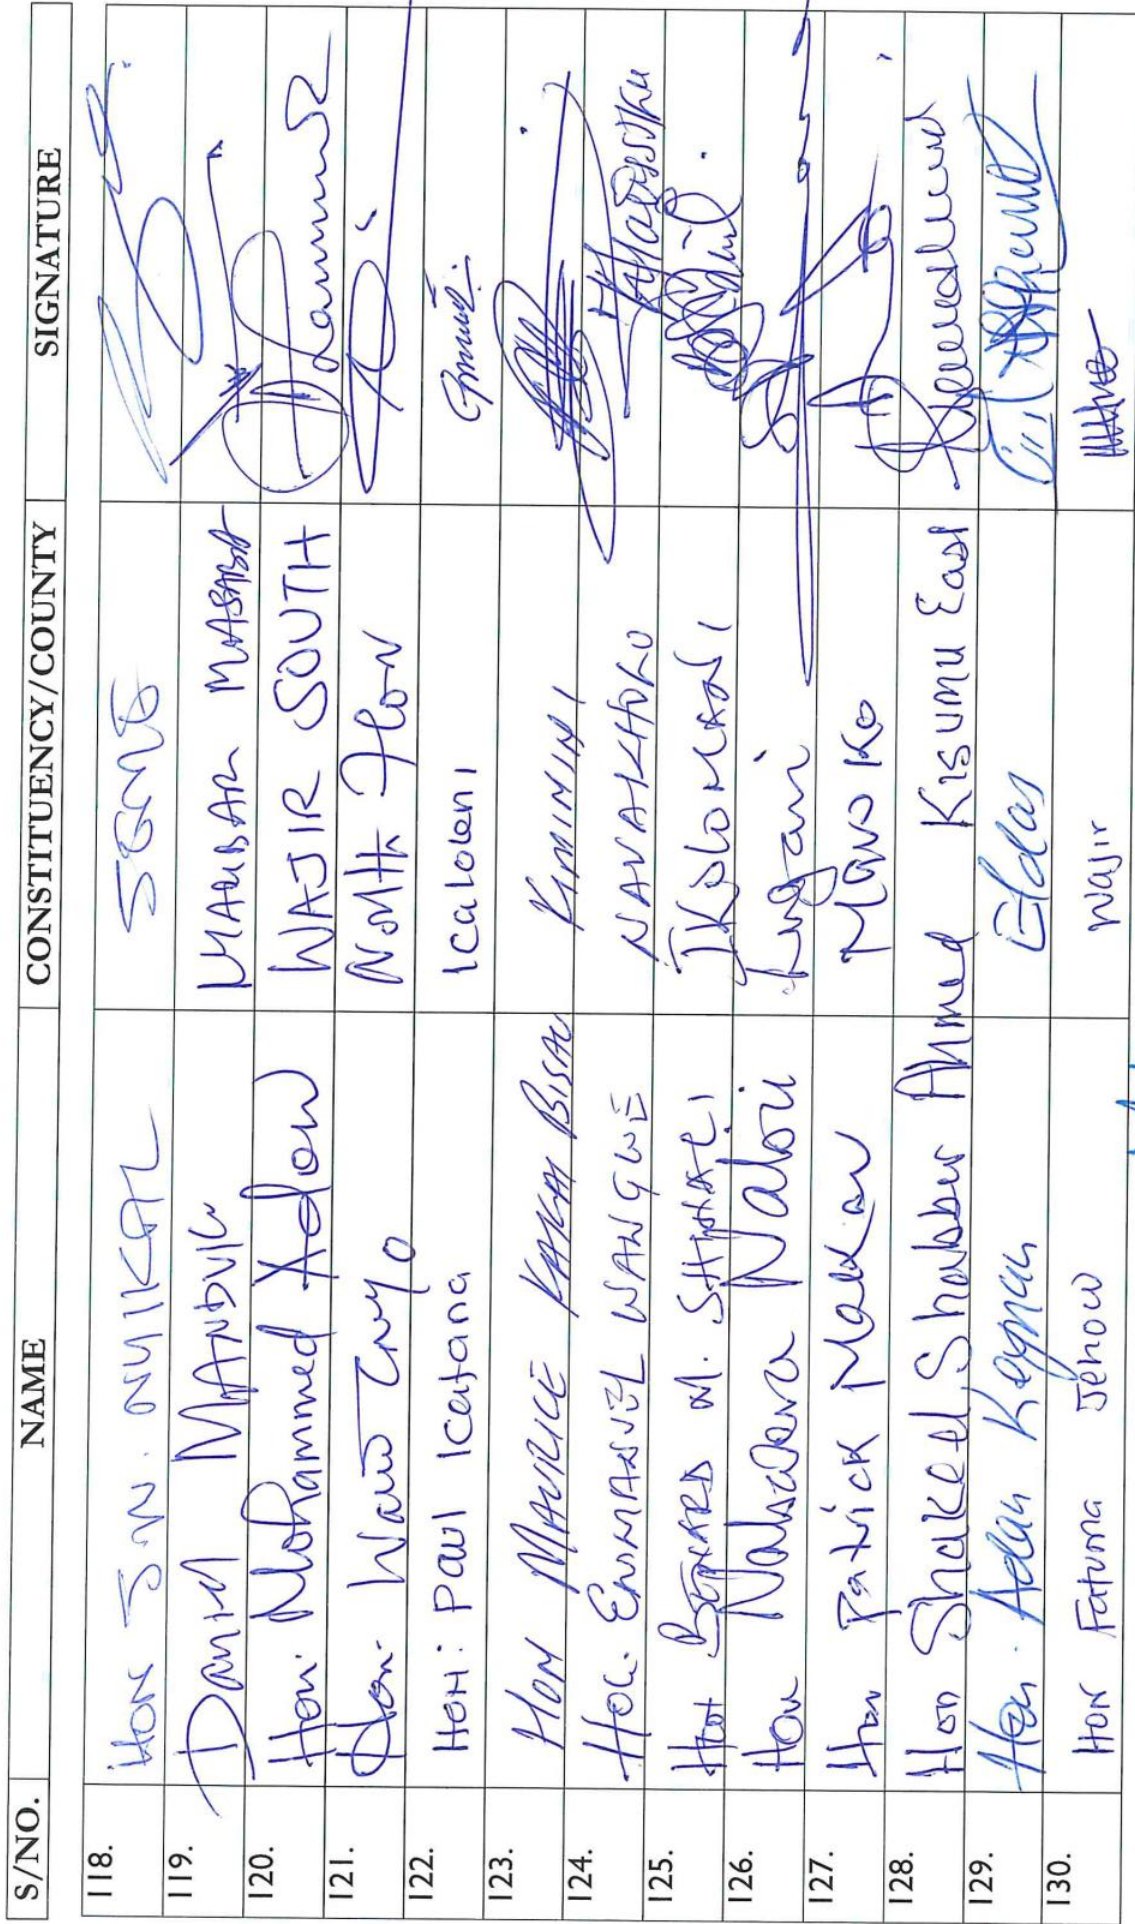 S/NO. NAME CONSTITUENCY/COUNTY SIGNATURE
118. HON J.W. NYIKAL SEME
119. David MANDUKU MASABA
120. Hon. Mohammed Adow WAJIR SOUTH
121. Hon. North Horr
122. HON: Paul Katana Kaloleni
123. HON MAURICE KAKAI BISAU KIMININI
124. HON. EMMANUEL WANGWE NAVAKHOLO
125. HON BERNARD M. SHINALI IKOLOMANI
126. Hon Nabwera Nabii Lugari
127. Hon Patrick Makau Mavoko
128. Hon Shakeel Shabbir Ahmed Kisumu East
129. Hon. Adan Keynan Eldas
130. HON Fatuma Jehow Wajir